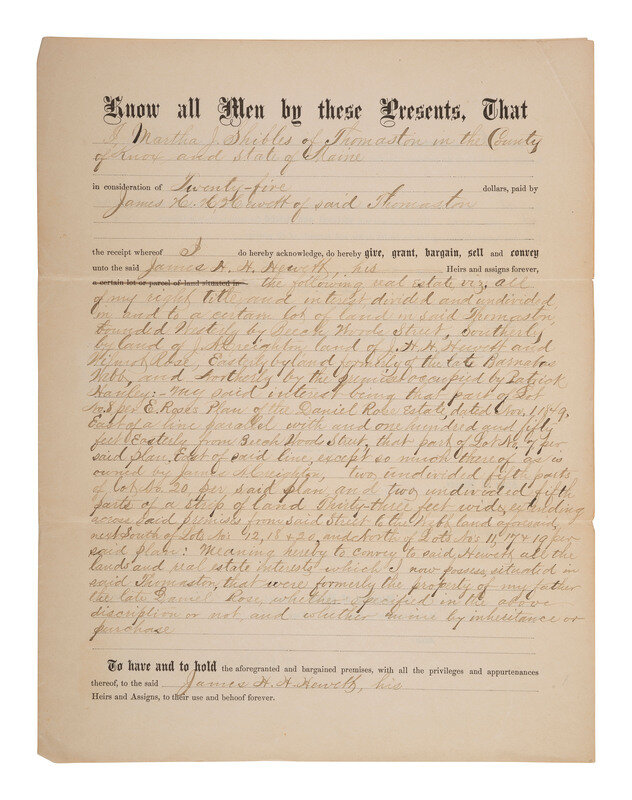 Know all Men by these Presents, That
I Martha J. Shibles of Thomaston in the County
of Knox and State of Maine
in consideration of Twenty-five dollars, paid by
James H. H. Hewett of said Thomaston
the receipt whereof I do hereby acknowledge, do hereby give, grant, bargain, sell and convey
unto the said James H. H. Hewett, his Heirs and assigns forever,
a certain lot or parcel of land situated in the following real estate viz, all
of my right title and interest divided and undivided
in and to a certain lot of land in said Thomaston,
bounded Westerly by Beech Woods Street, Southerly
by land of J. A. Creighton, land of J. H. H. Hewett and
Rose, Easterly by land formerly of the late Barnabas
Webb, and Northerly by the premises occupied by Patrick
Hanley:- My said interest being that part of Lot
No. 8 per E. Rose's Plan of the Daniel Rose Estate, dated Nov. 1 1849,
East of a line parallel with and one hundred and fifty
feet Easterly from Beech Woods Street, that part of Lot No. 7 per
said plan, East of said line, except so much thereof as is
owned by James A. Creighton, two undivided fifth parts
of lot No. 20 per said plan and two undivided fifth
parts of a strip of land Thirty-three feet wide, extending
across said premises from said Street to the Webb land aforesaid,
next South of Lots Nos 12, 18 & 20, and North of Lots Nos 11, 17 & 19 per
said plan: Meaning hereby to convey to said Hewett all the
lands and real estate interests which I now possess, situated in
said Thomaston, that were formerly the property of my father
the late Daniel Rose, whether specified in the above
discription or not, and whether mine by inheritance or
purchase
To have and to hold the aforegranted and bargained premises, with all the privileges and appurtenances
thereof, to the said James H. H. Hewett, his
Heirs and Assigns, to their use and behoof forever.